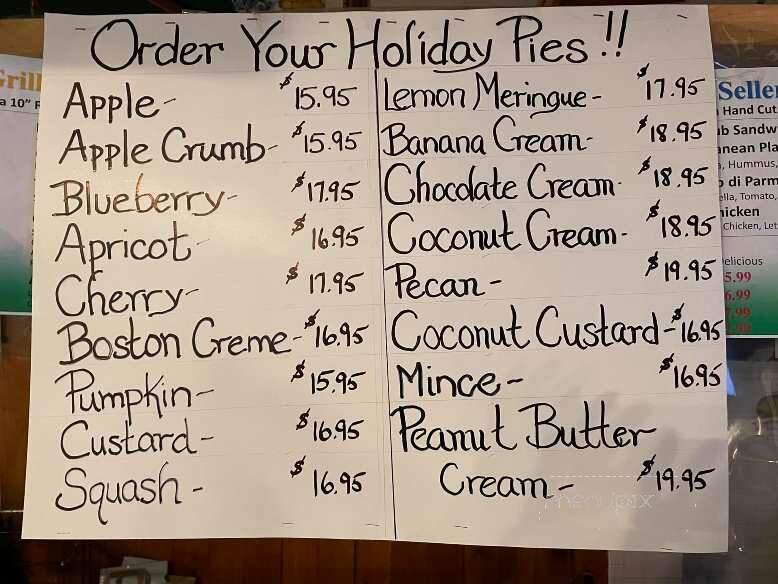 Order Your Holiday Pies!!
Apple- $15.95
Apple Crumb- $15.95
Blueberry- $17.95
Apricot- $16.95
Cherry- $17.95
Boston Creme- $16.95
Pumpkin- $15.95
Custard- $16.95
Squash- $16.95
Lemon Meringue- $17.95
Banana Cream- $18.95
Chocolate Cream- $18.95
Coconut Cream- $18.95
Pecan- $19.95
Coconut Custard- $16.95
Mince- $16.95
Peanut Butter
Cream- $19.95
Grill
a 10"
Seller
Hand Cut
Sandw
anean Pla
Hummus,
di Parm
ella, Tomato,
hicken
Chicken, Let
elicious
5.99
6.99
menupix